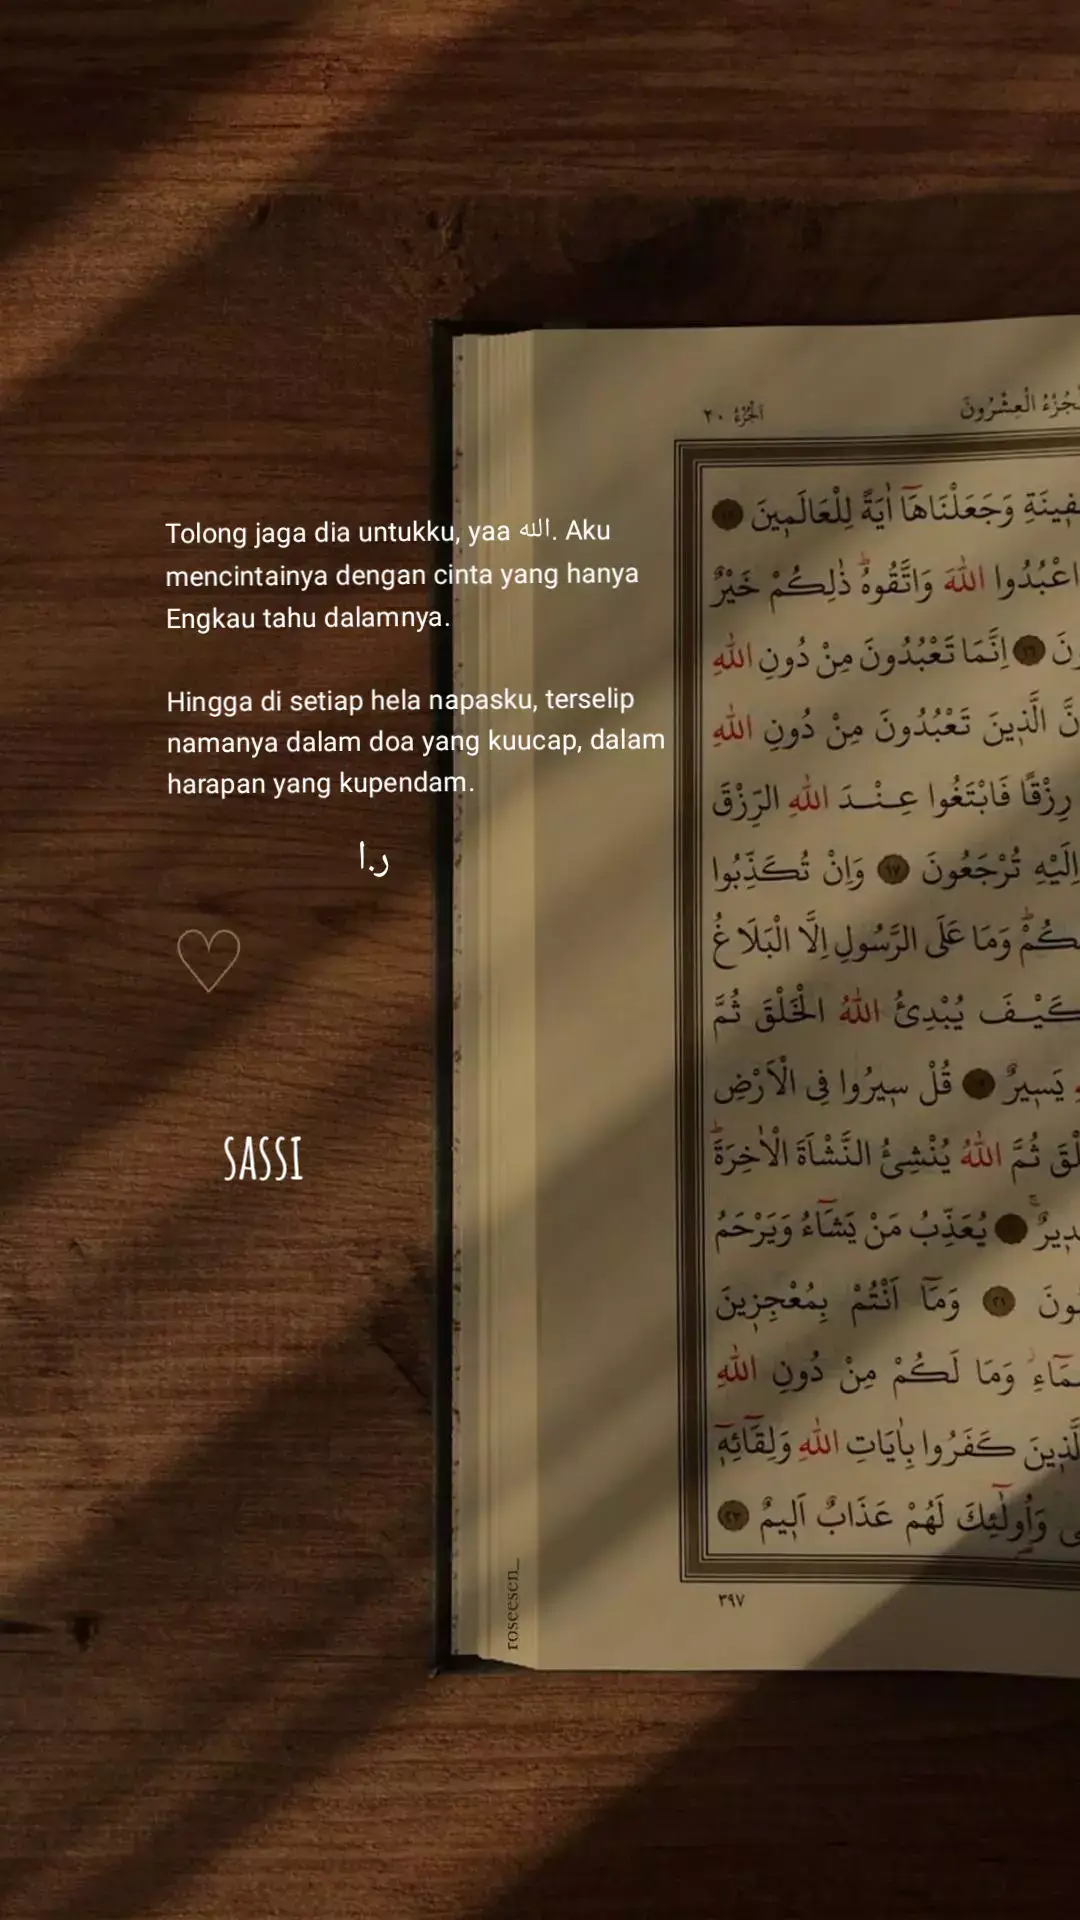 Tolong jaga dia untukku, yaa الله. Aku
mencintainya dengan cinta yang hanya
Engkau tahu dalamnya.
Hingga di setiap hela napasku, terselip
namanya dalam doa yang kuucap, dalam
harapan yang kupendam.
ر.ا
SASSI
اَلْجُزْءُ ٢٠
الْعِشْرُونَ
وَجَعَلْنَاهَٓا اٰيَةً لِلْعَالَمٖينَ
اعْبُدُوا اللّٰهَ وَاتَّقُوهُ ذٰلِكُمْ خَيْرٌ
١٦ اِنَّمَا تَعْبُدُونَ مِنْ دُونِ اللّٰهِ
الَّذٖينَ تَعْبُدُونَ مِنْ دُونِ اللّٰهِ
رِزْقًا فَابْتَغُوا عِنْدَ اللّٰهِ الرِّزْقَ
اِلَيْهِ تُرْجَعُونَ ١٧ وَاِنْ تُكَذِّبُوا
وَمَا عَلَى الرَّسُولِ اِلَّا الْبَلَاغُ
كَيْفَ يُبْدِئُ اللّٰهُ الْخَلْقَ ثُمَّ
يَسٖيرٌ قُلْ سٖيرُوا فِى الْاَرْضِ
ثُمَّ اللّٰهُ يُنْشِئُ النَّشْاَةَ الْاٰخِرَةَ
يُعَذِّبُ مَنْ يَشَٓاءُ وَيَرْحَمُ
٢١ وَمَٓا اَنْتُمْ بِمُعْجِزٖينَ
وَمَا لَكُمْ مِنْ دُونِ اللّٰهِ
كَفَرُوا بِاٰيَاتِ اللّٰهِ وَلِقَٓائِهٖٓ
وَاُولٰٓئِكَ لَهُمْ عَذَابٌ اَلٖيمٌ ٢٣
٣٩٧
roseesen_